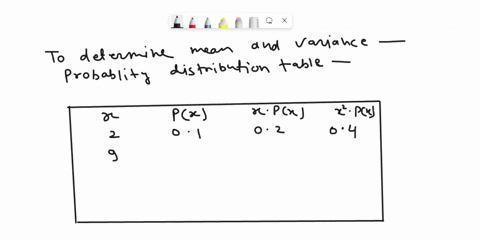 To determine mean and variance —
Probablity distribution table —
x P(x) x·P(x) x²·P(x)
2 0.1 0.2 0.4
9